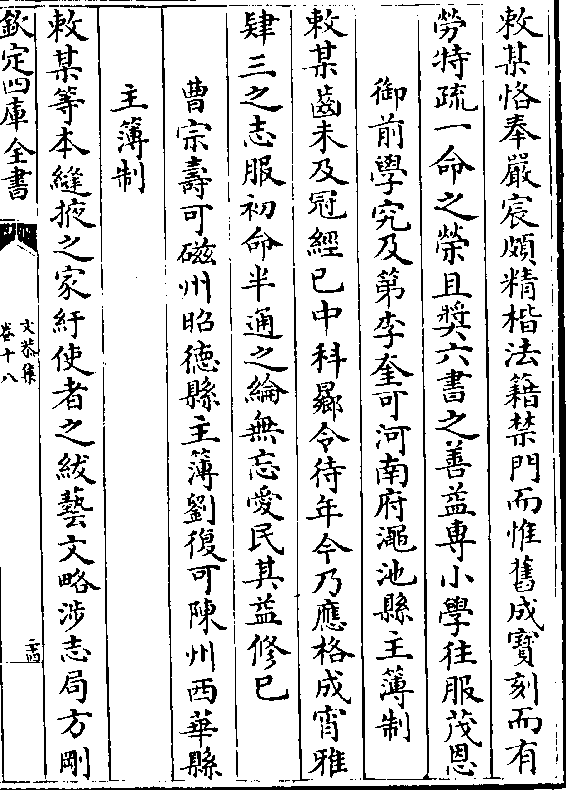 敕某恪奉嚴宸頗精楷法籍禁門而惟舊成寳刻而有
勞特疏一命之榮且奬六書之善益專小學往服茂恩
御前學究及第李奎可河南府澠池縣主簿制
敕某齒未及冠經已中科曏令待年今乃應格成宵雅
肄三之志服初命半通之綸無忘愛民其益修已
曹宗壽可磁州昭德縣主簿劉復可陳州西華縣
主簿制
敕某等本縫掖之家紆使者之紱藝文略涉志局方剛
欽定四庫全書
文恭集
卷十八
三四